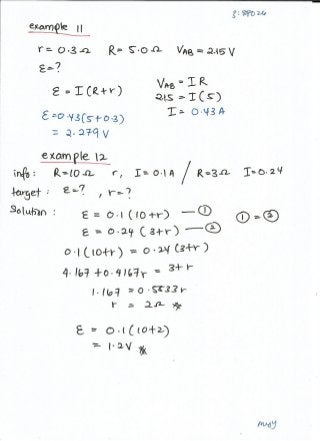 example 11
r = 0.3 Ω R = 5.0 Ω VAB = 2.15 V
ε = ?
VAB = IR
ε = I (R+r) 2.15 = I (5)
I = 0.43 A
ε = 0.43 (5+0.3)
= 2.279 V
example 12
info : R = 10 Ω r, I = 0.1 A / R = 3 Ω I = 0.24
target : ε = ? , r = ?
Solution : ε = 0.1 (10+r) — ① ① = ②
ε = 0.24 (3+r) — ②
0.1 (10+r) = 0.24 (3+r)
4.167 + 0.4167r = 3+r
1.167 = 0.5833r
r = 2Ω
ε = 0.1 (10+2)
= 1.2 V